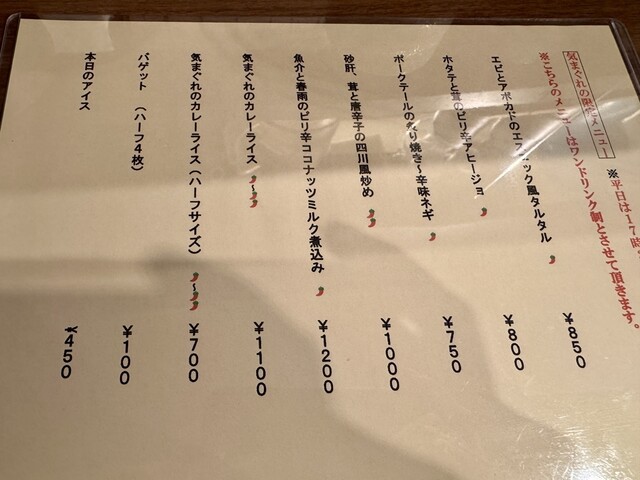 気まぐれの限定メニュー
※平日は17時
※こちらのメニューはワンドリンク制とさせて頂きます。
エビとアボカドのエスニック風タルタル ¥850
ホタテと茸のピリ辛アヒージョ ¥800
ポークテールの炙り焼き～辛味ネギ ¥750
砂肝、茸と唐辛子の四川風炒め ¥1000
魚介と春雨のピリ辛ココナッツミルク煮込み ¥1200
気まぐれのカレーライス ～ ¥1100
気まぐれのカレーライス（ハーフサイズ） ～ ¥700
バゲット （ハーフ4枚） ¥100
本日のアイス ¥450